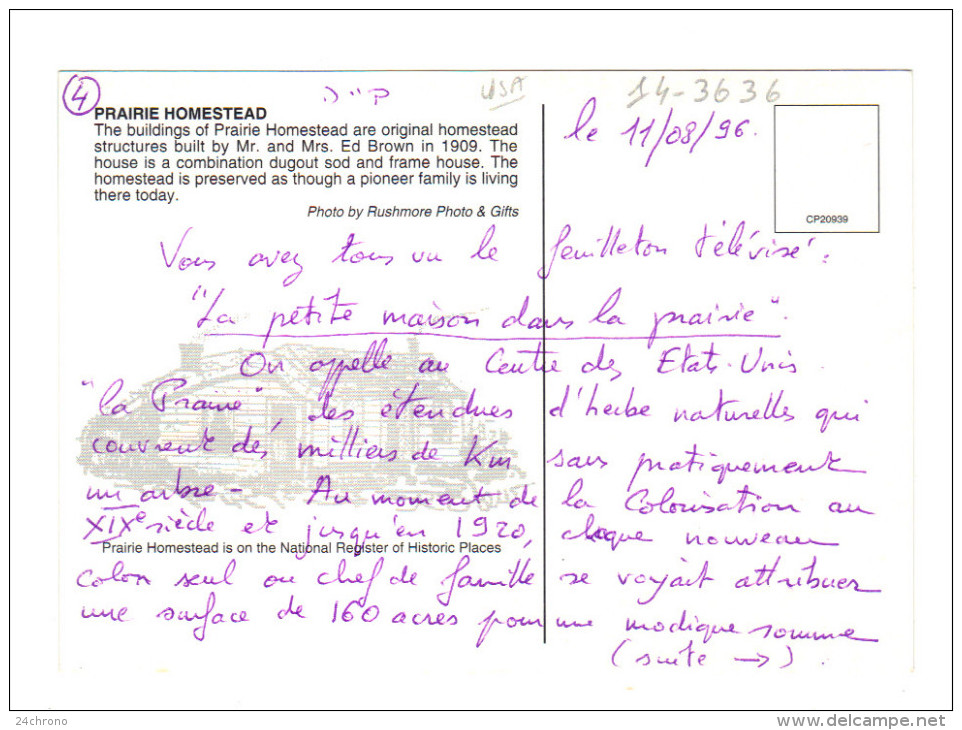 4
USA
14-3636
PRAIRIE HOMESTEAD
The buildings of Prairie Homestead are original homestead
structures built by Mr. and Mrs. Ed Brown in 1909. The
house is a combination dugout sod and frame house. The
homestead is preserved as though a pioneer family is living
there today.
Photo by Rushmore Photo & Gifts
le 11/08/96.
CP20939
Vous avez tous vu le feuilleton télévisé :
"La petite maison dans la prairie".
On appelle au Centre des Etats-Unis
"la Prairie", des étendues d'herbe naturelles qui
couvrent des milliers de Km sans pratiquement
un arbre - Au moment de la Colonisation au
XIXe siècle et jusqu'en 1920, chaque nouveau
Prairie Homestead is on the National Register of Historic Places
colon seul ou chef de famille se voyait attribuer
une surface de 160 acres pour une modique somme
(suite →).
24chrono
www.delcampe.net